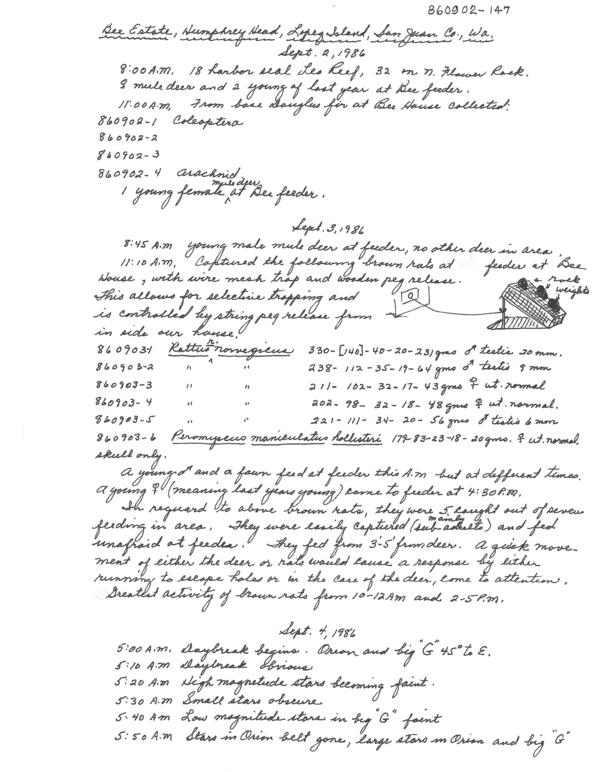 860902-147
Bee Estate, Humphrey Head, Lopez Island, San Juan Co., Wa.
Sept. 2, 1986
8:00 A.M. 18 harbor seal Leo Reef, 32 on N. Flower Rock.
9 mule deer and 2 young of last year at Bee feeder.
11:00 A.M. From base douglas fir at Bee House collected:
860902-1 Coleoptera
860902-2
860902-3
860902-4 Arachnid
1 young female mule deer at Bee feeder.
Sept. 3, 1986
8:45 A.M young male mule deer at feeder, no other deer in area.
11:10 A.M. Captured the following brown rats at feeder at Bee
House, with wire mesh trap and wooden peg release.
rock weights
This allows for selective trapping and
is controlled by string peg release from
in side our house.
860903-1 Rattus n. norvegicus 330-[140]-40-20-231gms ♂ testis 20 mm.
860903-2 " " 238-112-35-19-64 gms ♂ testis 9 mm
860903-3 " " 211-102-32-17-43 gms ♀ ut. normal
860903-4 " " 202-98-32-18-48 gms ♀ ut. normal.
860903-5 " " 221-111-34-20-56 gms ♂ testis 6 mm
860903-6 Peromyscus maniculatus hollisteri 179-83-23-18-20gms. ♀ ut. normal.
skull only.
A young ♂ and a fawn feed at feeder this A.M but at different times.
A young ♀ (meaning last years young) came to feeder at 4:30 P.M.
In reguard to above brown rats, they were 5 caught out of seven
feeding in area. They were easily captured (mainly sub-adults) and fed
unafraid at feeder. They fed from 3-5' from deer. A quick move-
ment of either the deer or rats would cause a response by either
running to escape holes or in the case of the deer, come to attention.
Greatest activity of brown rats from 10-12AM and 2-5 P.M.
Sept. 4, 1986
5:00 A.M. Daybreak begins. Orion and big "G" 45° to E.
5:10 A.M Daybreak obvious
5:20 A.M High magnetude stars becoming faint.
5:30 A.M Small stars obscure
5:40 AM Low magnitude stars in big "G" faint
5:50 A.M Stars in Orion belt gone, large stars in Orion and big "G"